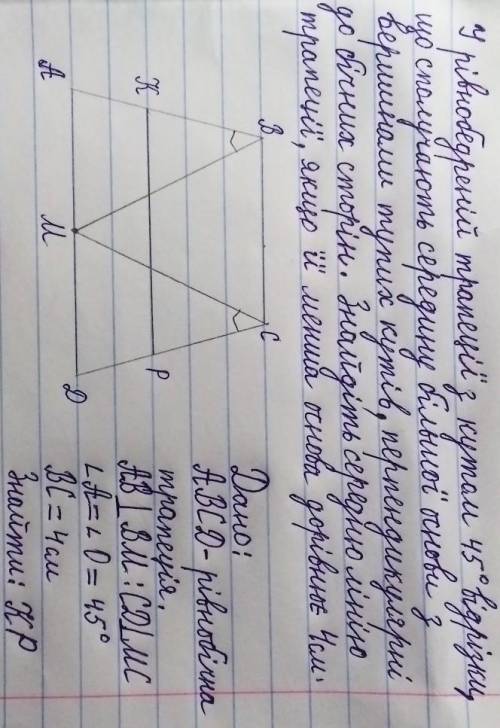 У рівнобедреній трапеції з кутам 45° відрізки,
що сполучають середину більшої основи з
вершинами тупих кутів, перпендикулярні
до бічних сторін. Знайдіть середню лінію
трапеції, якщо її менша основа дорівнює 4см.
B
C
K
P
A
M
D
Дано:
ABCD - рівнобічна
трапеція.
AB⊥BM; CD⊥MC
∠A=∠D=45°
BC=4см
Знайти: KP